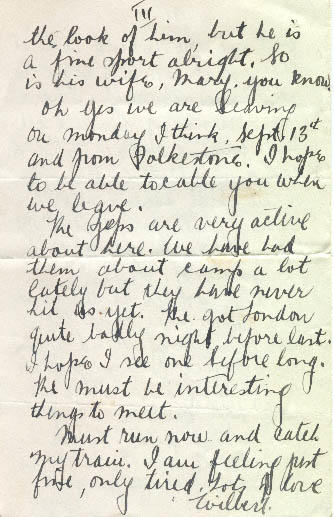 III
the look of him, but he is
a fine sport alright. So
is his wife, Mary, you know.
Oh yes we are leaving
on monday I think, Sept. 13th
and from Folkestone. I hope
to be able to cable you when
we leave.
The Zeps are very active
about here. We have had
them about camp a lot
lately but they have never
hit us yet. The got London
quite badly night before last.
I hope I see one before long.
The must be interesting
things to meet.
Must run now and catch
my train. I am feeling just
fine, only tired. Lots of love
Wilbert.